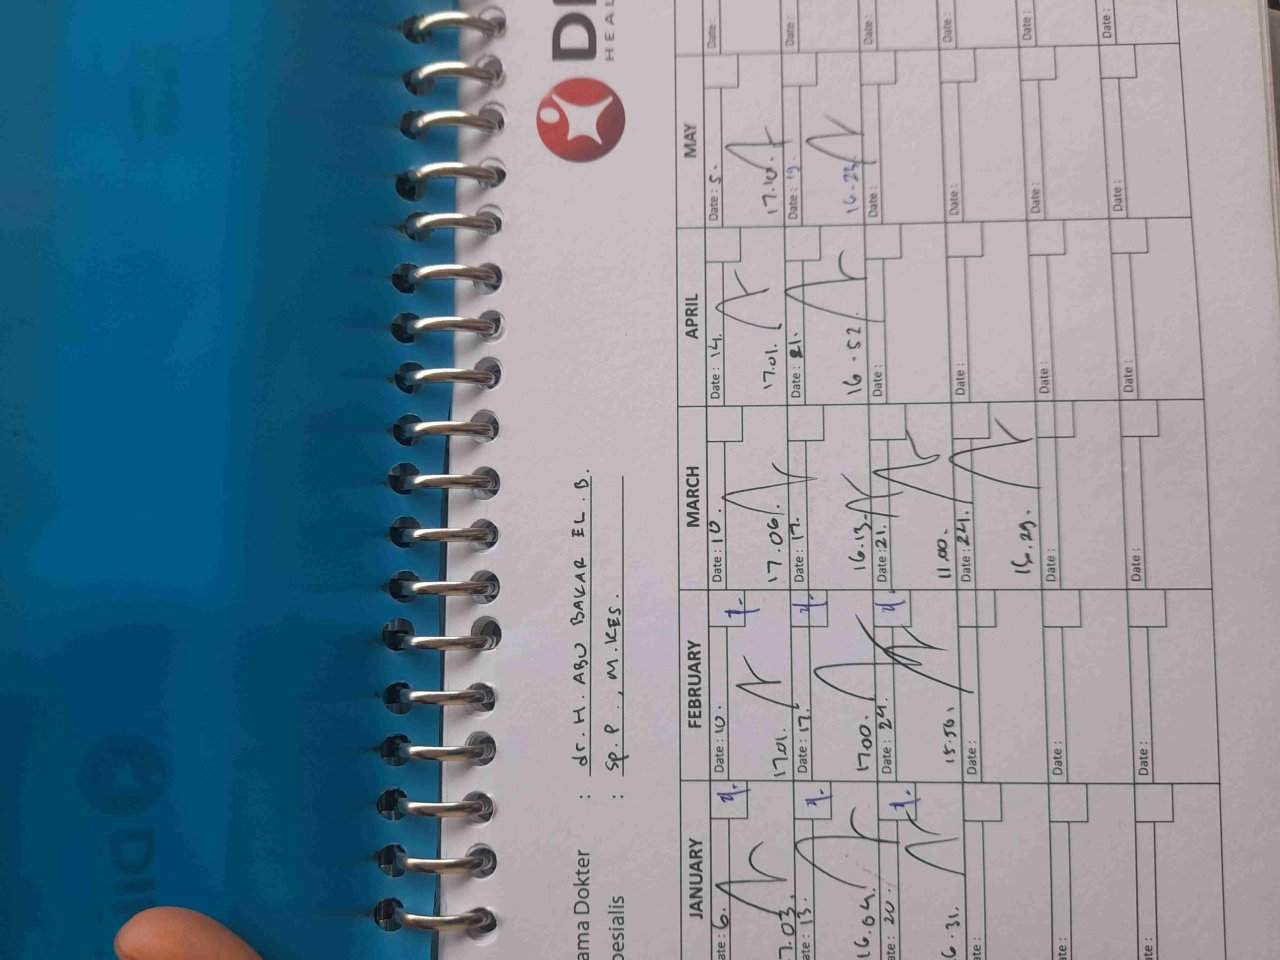 DI
HEAL
ama Dokter : dr. H. ABU BAKAR EL. B.
pesialis : Sp. P., M. KES.
JANUARY FEBRUARY MARCH APRIL MAY
ate: 6. Date: 10. Date: 10. Date: 14. Date: 5. Date:
7.03. 17.01. 17.06. 17.01. 17.10.
ate: 13. Date: 17. Date: 17. Date: 21. Date: 19. Date:
16.04. 17.00. 16.13. 16.52. 16.23.
ate: 20. Date: 24. Date: 21. Date: Date: Date:
6.31. 15.50. 11.00.
ate: Date: Date: 24. Date: Date: Date:
29.
ate: Date: Date: Date: Date: Date:
ate: Date: Date: Date: Date: Date: